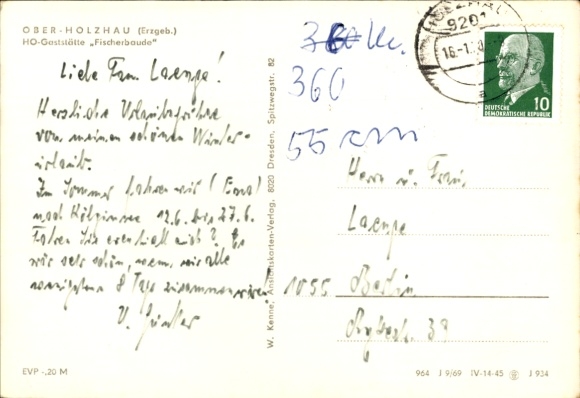 OBER-HOLZHAU (Erzgeb.)
HO-Gaststätte „Fischerbaude"
Liebe Fam. Laenge!
Herzliche Urlaubsgrüße
von meinem schönen Winter-
urlaub.
Im Sommer fahren wir (Erna)
nach Kölpinsee 12.6. bis 27.6.
Fahren Sie eventuell auch? Es
wär sehr schön, wenn wir alle
wenigstens 8 Tage zusammen wären!
V. Günter
EVP -,20 M
W. Kenne, Ansichtskarten-Verlag, 8020 Dresden, Spitzwegstr. 82
360
55 cm
9201
a
DEUTSCHE
DEMOKRATISCHE REPUBLIK
10
Herrn u. Frau
Laenge
1055 Berlin
38
964 J 9/69 IV-14-45 J 934